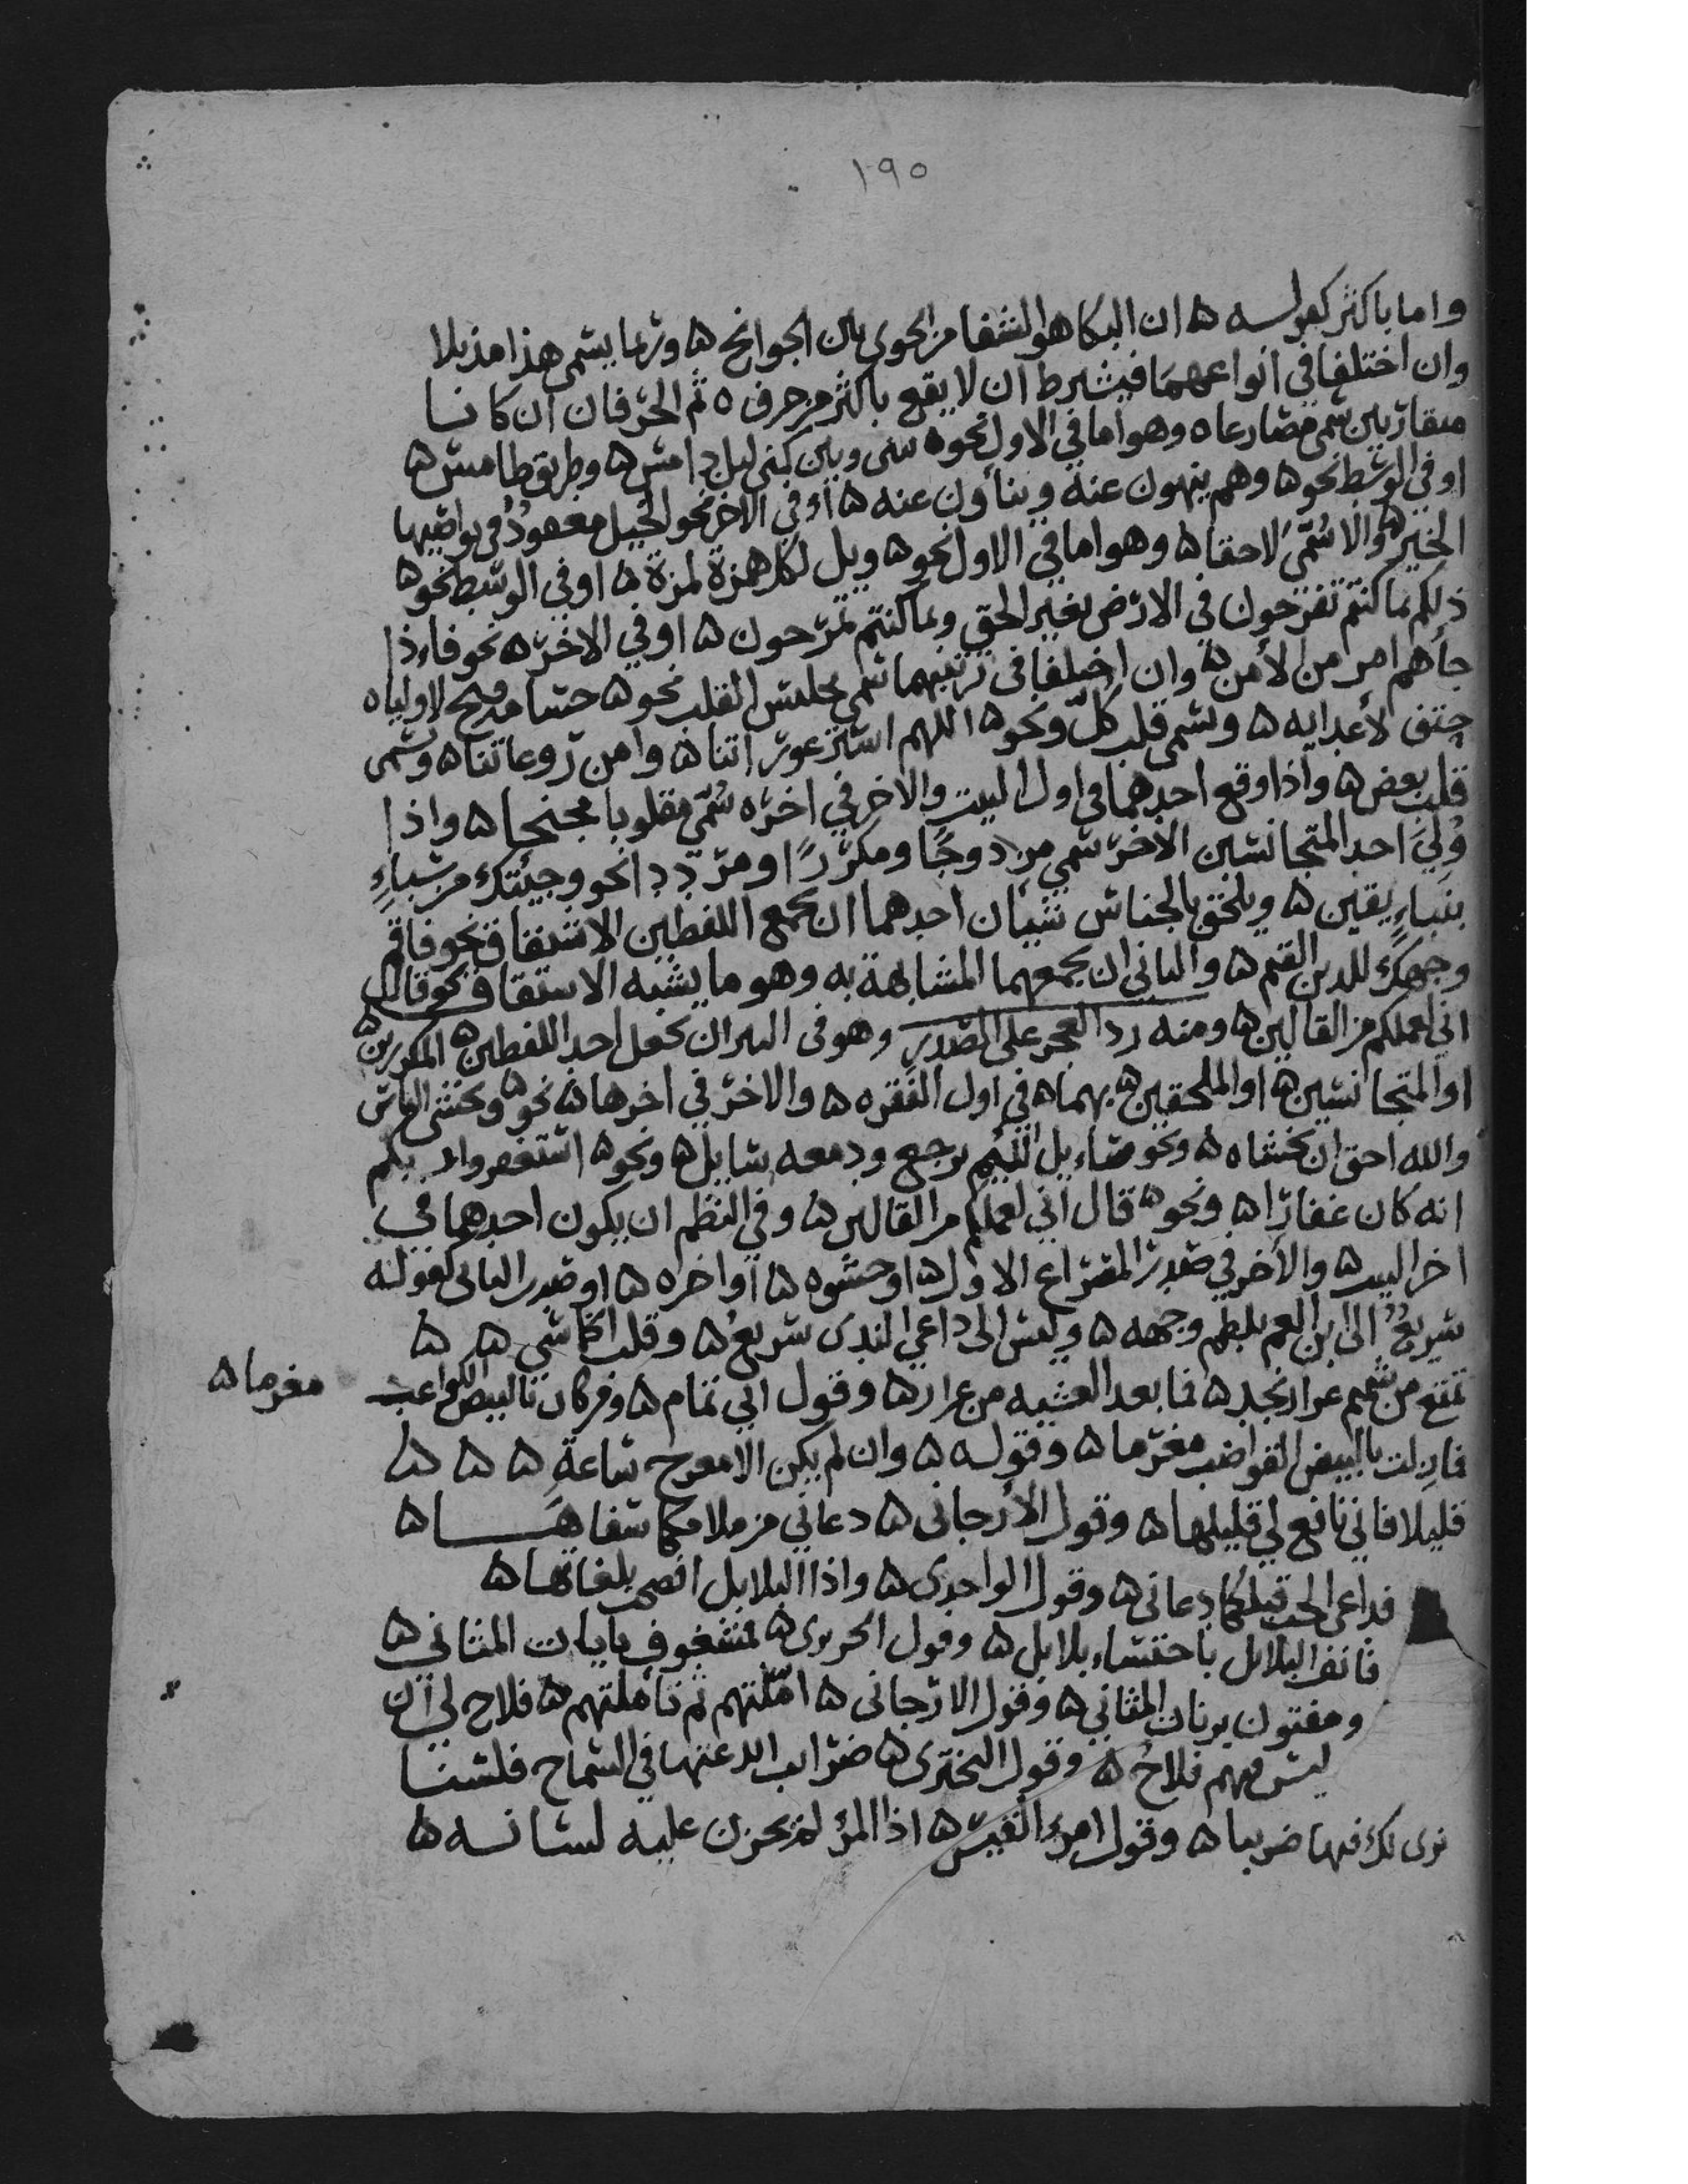 ١٩٥
واما باكثر كقوله ه ان البكا هو الشفا من الجوى بين الجوانح ه وربما يسمى هذا مذيلا
وان اختلفا في انواعهما فيشترط ان لا يقع باكثر من حرف ه ثم الحرفان ان كانا
متقاربين سمي مضارعا ه وهو اما في الاول نحو ه بيني وبين كني ليل دامس ه وطريق طامس ه
او في الوسط نحو ه وهم ينهون عنه وينأون عنه ه او في الاخر نحو الخيل معقود في نواصيها
الخير ه والا سمي لاحقا ه وهو اما في الاول نحو ه ويل لكل همزة لمزة ه او في الوسط نحو ه
ذلكم بما كنتم تفرحون في الارض بغير الحق وبما كنتم تمرحون ه او في الاخر ه نحو فاذا
جأهم امر من الأمن ه وان اختلفا في ترتيبهما سمي تجنيس القلب نحو ه حسامه فتح لاوليا ه
حتف لأعدايه ه ويسمى قلب كل ونحو ه اللهم استر عوراتنا ه وامن روعاتنا ه ويسمى
قلب بعض ه واذا وقع احدهما في اول البيت والاخر في اخره سمي مقلوبا مجنحا ه واذا
ولي احد المتجانسين الاخر سمي مزدوجا ومكررا ومرددا نحو وجيئتك من سباء
بنباء يقين ه ويلحق بالجناس شيأن احدهما ان يجمع اللفظين الاشتقاق نحو فاقم
وجهك للدين القيم ه والثاني ان يجمعهما المشابهة به وهو ما يشبه الاشتقاق نحو قال
اني لعملكم من القالين ه ومنه رد العجز على الصدر وهو في النثر ان يجعل احد اللفظين المكررين ه
او المتجانسين ه او الملحقين ه بهما ه في اول الفقره ه والاخر في اخرها ه نحو ه وتخشى الناس
والله احق ان تخشاه ه ونحو سايل اللئيم يرجع ودمعه سايل ه ونحو ه استغفروا ربكم
انه كان غفارا ه ونحو ه قال اني لعملكم من القالين ه وفي النظم ان يكون احدهما في
اخر البيت ه والأخر في صدر المصراع الاول ه او حشوه ه او اخره ه او صدر الثاني كقوله
سريع الى ابن العم يلطم وجهه ه وليس الى داعي الندى بسريع ه وقلب ه ه
تمتع من شميم عرار نجد ه فما بعد العشيه من عرار ه وقول ابي تمام ه ومن كان بالبيض الكواعب
مغرما ه
فما زلت بالبيض القواضب مغرما ه وقوله ه وان لم يكن الا معرج ساعة ه ه ه
قليلا فاني نافع لي قليلها ه وقول الأرجاني ه دعاني من ملامكما سفاها ه
فداعي الحب قبلكما دعاني ه وقول الواحدى ه واذا البلابل افصحت بلغاتها ه
فانف البلابل باحتساء بلابل ه وقول الحريرى ه فمشغوف بايات المثاني ه
ومفتون برنات المثاني ه وقول الارجاني ه املتهم ثم تأملتهم ه فلاح لي ان
ليس فيهم فلاح ه وقول البحترى ه ضرايب ابدعتها في السماح فلسنا
نرى لك فيها ضريبا ه وقول امرء القيس ه اذا المرء لم يخزن عليه لسانه ه